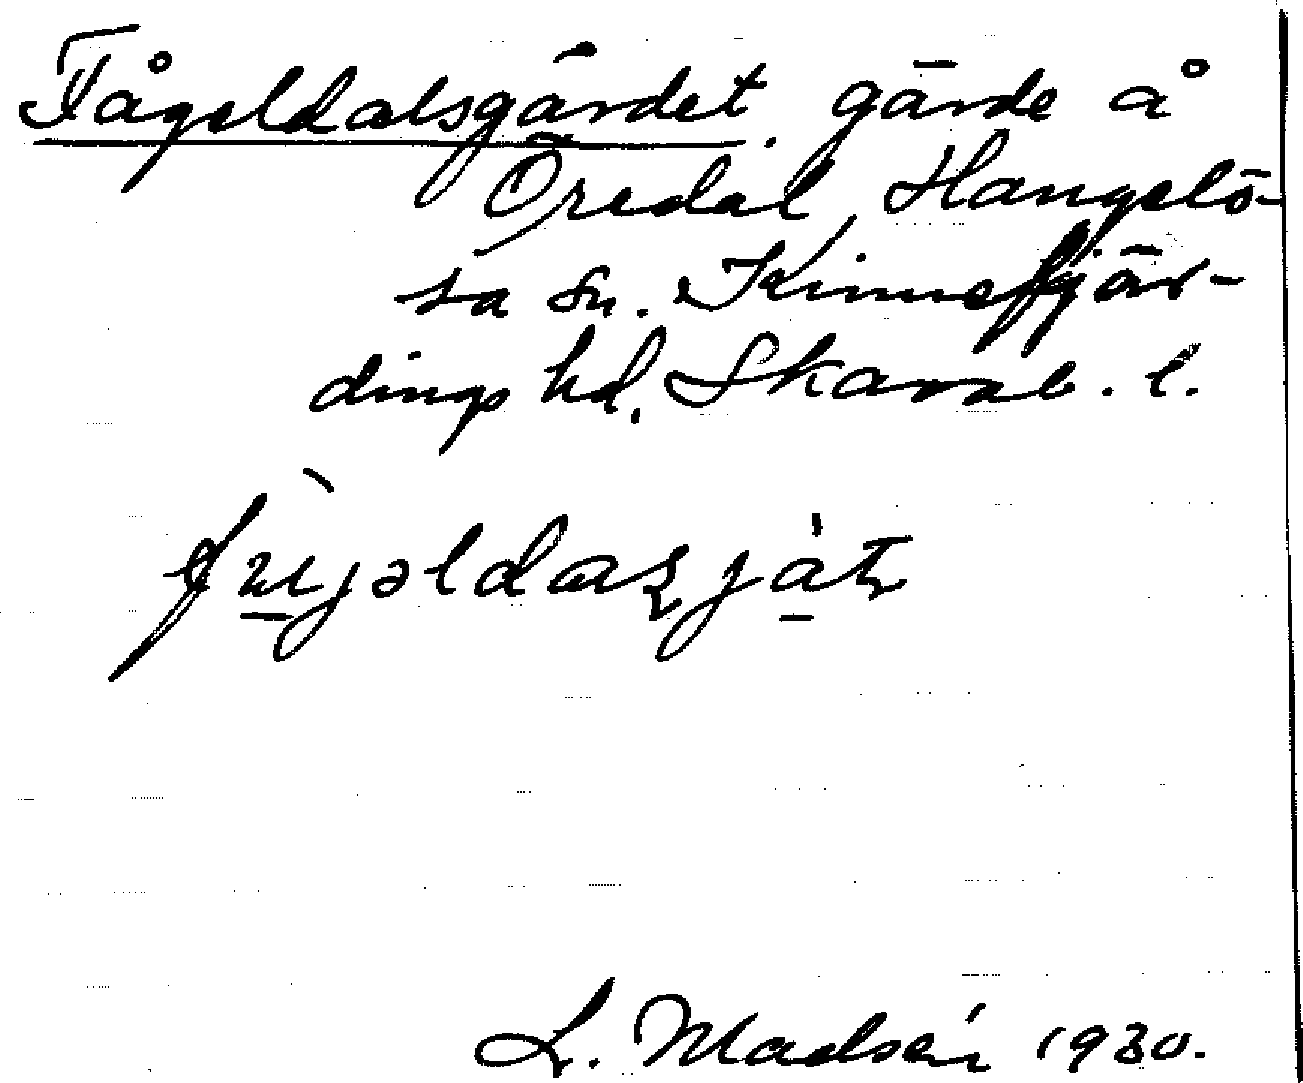 Fågeldalsgärdet, gärde å
Öredal, Hangelö-
sa sn. Kinnefjär-
dings hd. Skarab. l.
L. Madsén 1930.